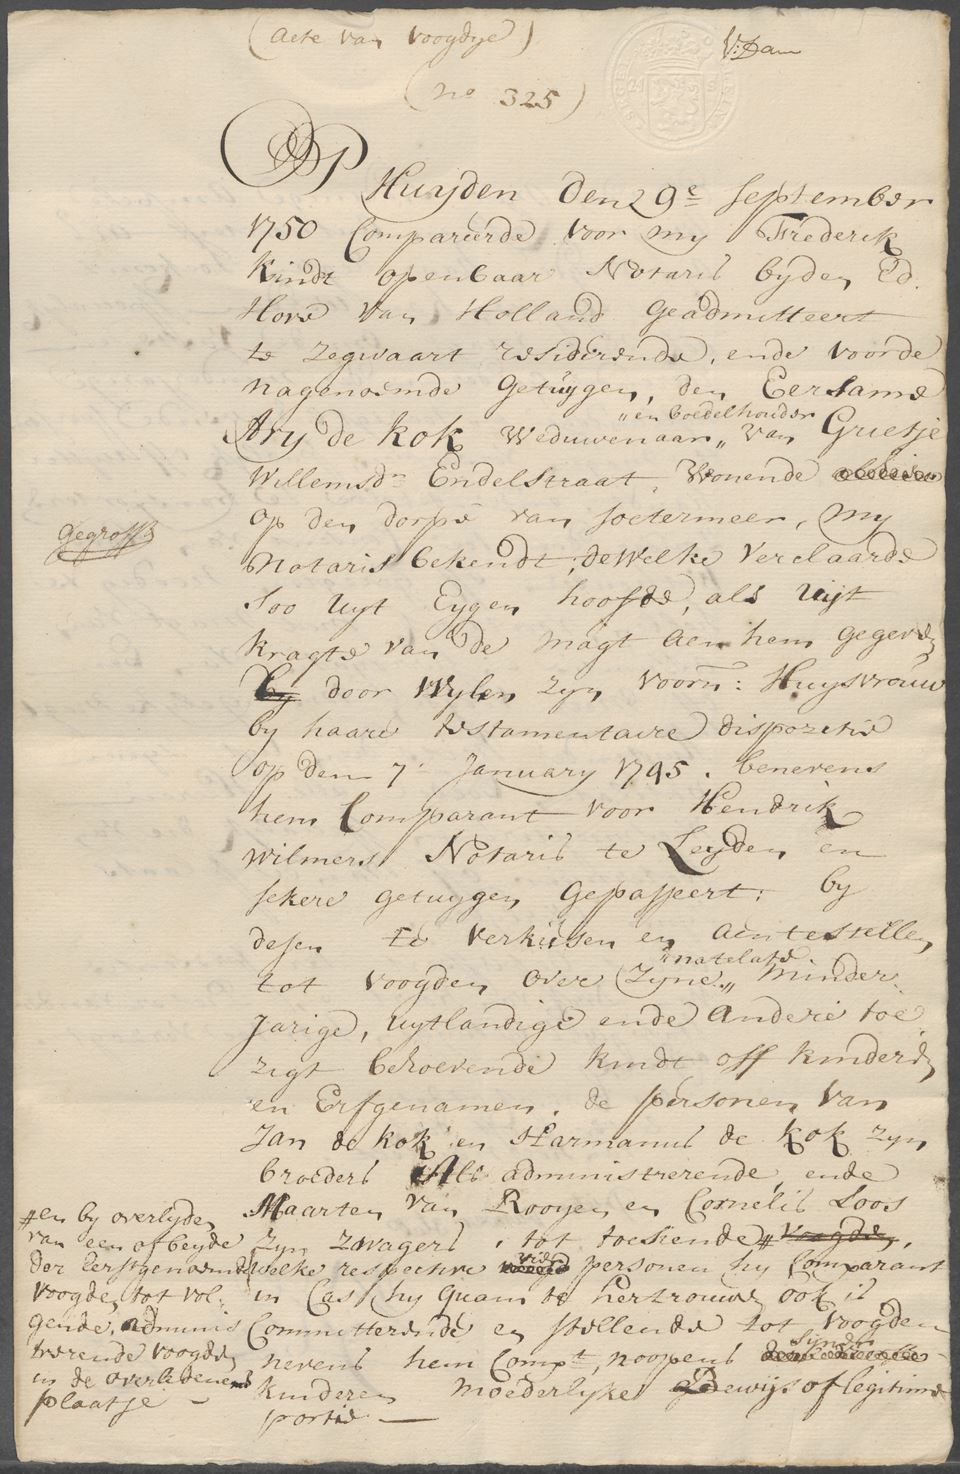 (Acte van voogdye)
V: Dam
(no 325)
Op Huijden den 29e September
1750 Compareerde voor my Frederik
Kindt openbaar Notaris byden Ed.
Hove van Holland geadmitteert
te Zegwaart resideerende, ende voorde
nagenoemde getuygen, den Eersame
"en boedelhouder
Ary de Kok Weduwenaar " van Grietje
Willemsdr Endelstraat, Wonende
op den dorpe van Soetermeer, my
Notaris bekendt, dewelke verclaarde
soo uyt Eygen hoofde, als uijt
kragte van de magt aen hem gegeven
by door Wylen zyn voorn: Huysvrouw
by haare testamentaire dispozitie
op den 7e January 1745. benevens
hem Comparant voor Hendrik
Wilmers Notaris te Leyden en
sekere getuygen gepasseert: by
desen te verkiesen en aentestellen
"natelate
tot voogden over zyne " minder-
jarige, uytlandige ende andere toe
zigt behoevende kindt off kinderen
en Erfgenamen, de personen van
Jan de Kok en Harmanus de Kok zyn
broeders als administrerende, ende
Maarten van Rooyen en Cornelis Loos
zyn zwagers, tot toesiende # voogden,
welke respective personen hy Comparant
in Cas hy quam te hertrouwen ook is
Committerende en stellende tot voogden
synder
nevens hem Compt, noopens
kinderen moederlyke Bewijs of legitime
portie —
gegrosst
#en by overlyden
van een of beyde
der eerstgenoemde
voogden, tot vol-
gende, adminis
trerende voogden
in de overledenens
plaatse —